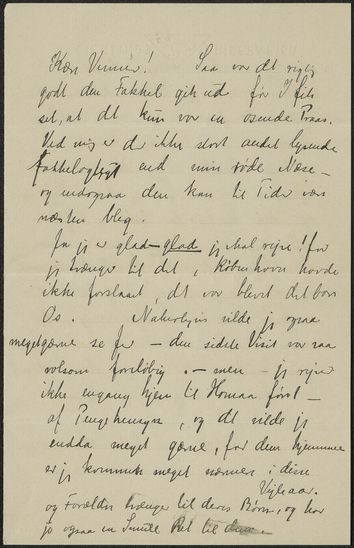 Kære Venner! Saa var det rigtig
godt den Fakkel gik ud før I fik
set, at det kun var en osende Praas.
Ved mig er der ikke stort andet lysende
fakkelagtigt end min røde Næse –
og endogsaa den kan til Tider være
næsten bleg.
Ja jeg er glad – glad jeg skal rejse! for
jeg trænger til det, København havde
ikke forslaaet, det var blevet det bare
Os. Naturligvis vilde jeg ogsaa
megetgærne se fer – den sidste Visit var saa
voldsom foreløbig. – men – jeg rejser
ikke engang hjem til Homaa først –
af Pengehensyn, og det vilde jeg
endda meget gærne, for dem hjemme
er jeg kommen meget nærmere i disse
Vejleaar.
og Forældre trænger til deres Børn, og har
jo ogsaa en Smule Ret til dem –